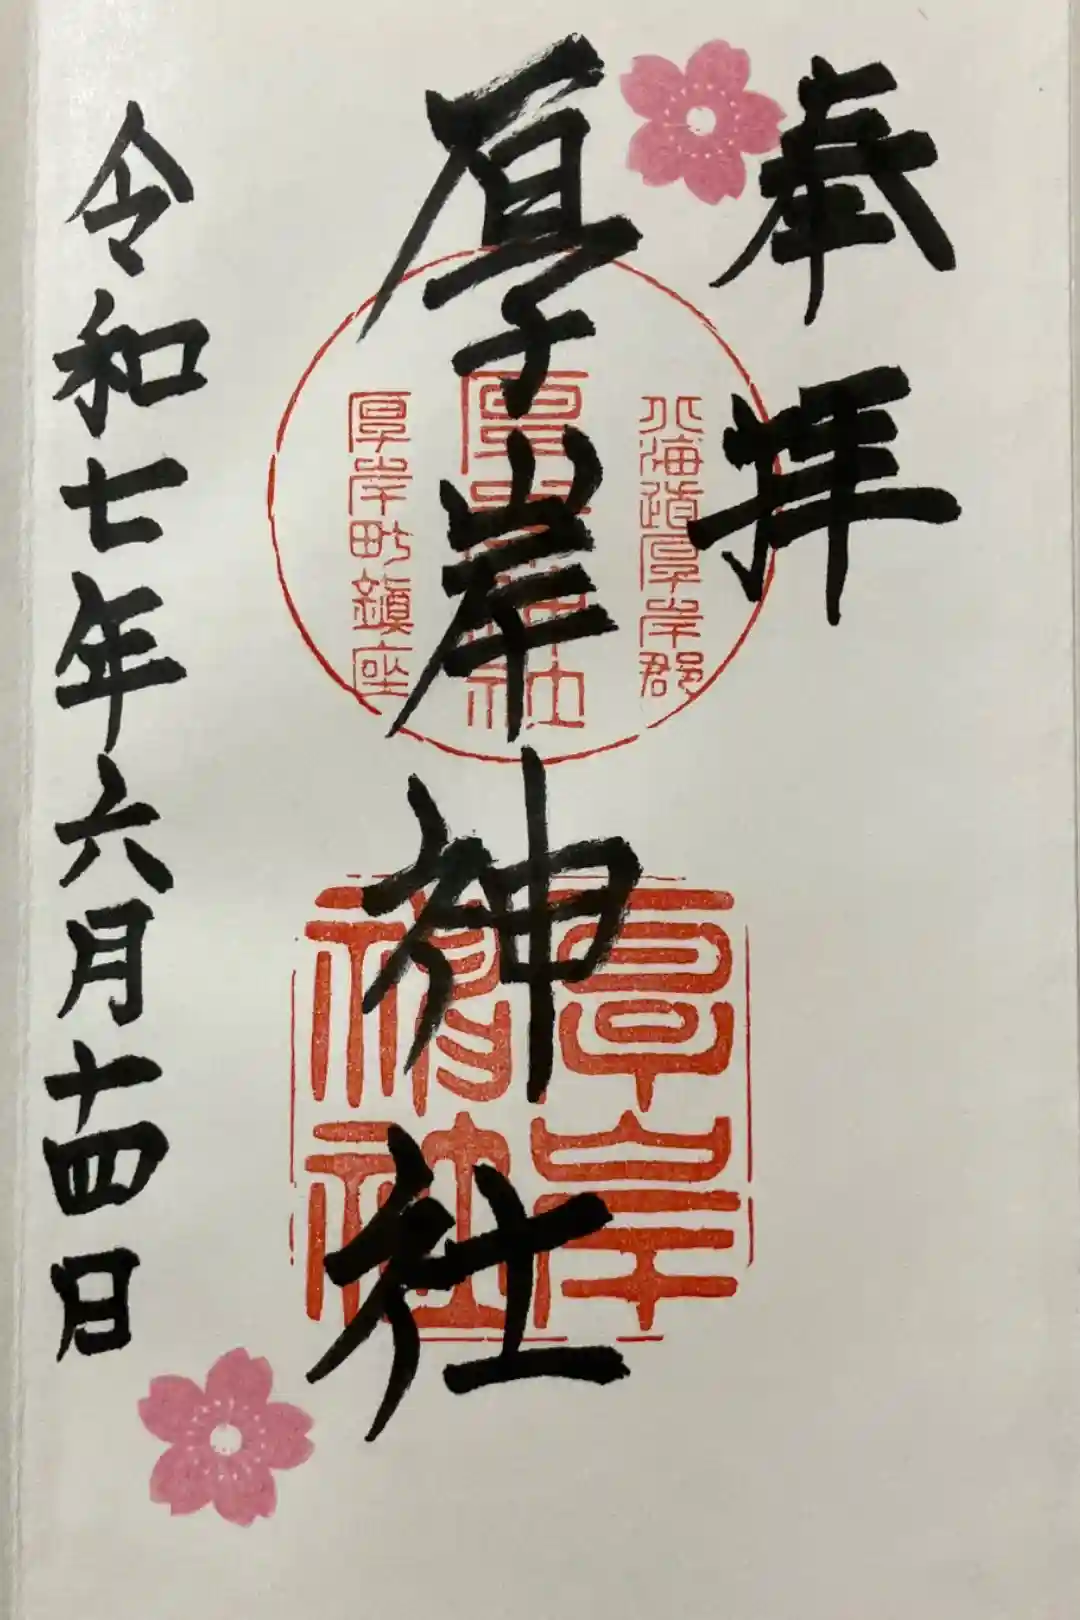 奉拝
北海道厚岸郡
厚岸神社
厚岸神社
厚岸町鎮座
厚岸
神社
令和七年六月十四日